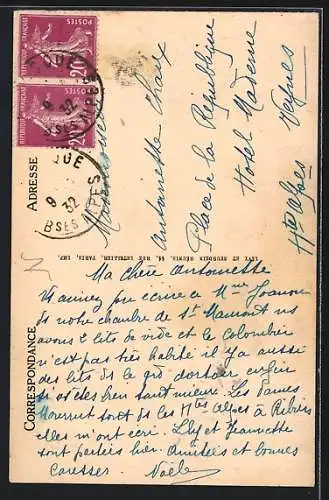 POSTES
20c
RÉPUBLIQUE FRANÇAISE
POSTES
20c
RÉPUBLIQUE FRANÇAISE
9
32
Bses ALPES
ADRESSE
Mademoiselle
Antoinette Chaix
Place de la République
Hotel Moderne
Veynes
Htes Alpes
LEVY ET NEURDEIN RÉUNIS, 44, RUE LETELLIER, PARIS, IMP.
CORRESPONDANCE
Ma chère Antoinette
pu écrire a Mme
de notre chambre de St
avons 2 lits de vide et le Colombier
n'est pas très habité il y a aussi
des lits de le gd dortoir enfin
si elles bien sont mieux. Les Dames
sont de les Htes Alpes à Ribiers
elles m'ont écri. Lily et Jeannette
sont parties hier. Amitiées et bonnes
Caresses. Noële